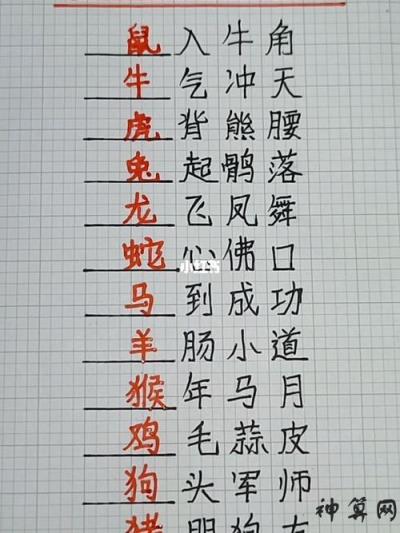 鼠入牛角
牛气冲天
虎背熊腰
兔起鹘落
龙飞凤舞
蛇心佛口
小红书
马到成功
羊肠小道
猴年马月
鸡毛蒜皮
狗头军师
猪朋狗友
神算网